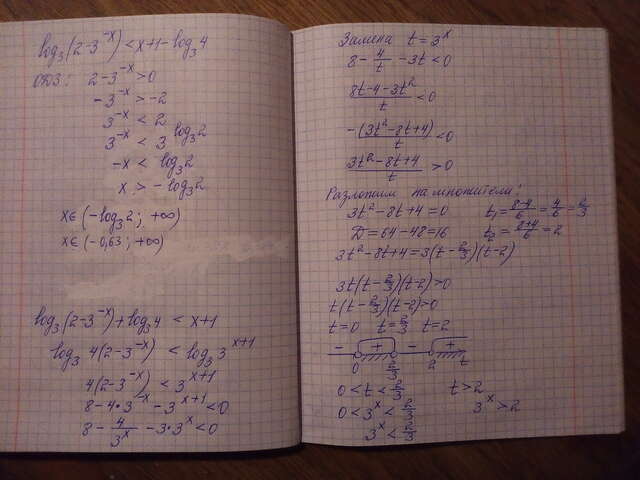 log₃(2-3⁻ˣ) < x+1-log₃4
ОДЗ: 2-3⁻ˣ>0
-3⁻ˣ > -2
3⁻ˣ < 2
3⁻ˣ < 3^(log₃2)
-x < log₃2
x > -log₃2
x∈(-log₃2; +∞)
x∈(-0,63; +∞)
log₃(2-3⁻ˣ)+log₃4 < x+1
log₃ 4(2-3⁻ˣ) < log₃ 3ˣ⁺¹
4(2-3⁻ˣ) < 3ˣ⁺¹
8-4·3⁻ˣ-3ˣ⁺¹<0
8 - 4/3ˣ - 3·3ˣ<0
Замена t=3ˣ
8 - 4/t - 3t<0
(8t-4-3t²)/t <0
-(3t²-8t+4)/t <0
(3t²-8t+4)/t >0
Разложим на множители:
3t²-8t+4=0 t₁=(8-4)/6=4/6=2/3
D=64-48=16 t₂=(8+4)/6=2
3t²-8t+4=3(t-2/3)(t-2)
3t(t-2/3)(t-2)>0
t(t-2/3)(t-2)>0
t=0 t=2/3 t=2
- + - +
0 2/3 2 t
0<t<2/3 t>2
0<3ˣ<2/3 3ˣ>2
3ˣ<2/3